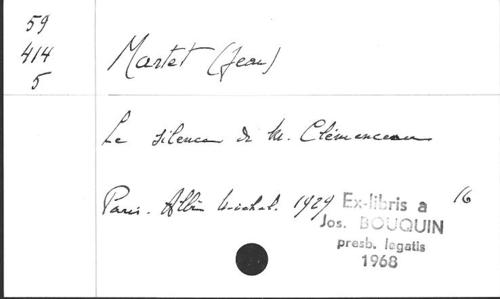 59
414
5
Martet (Jean)
Le silence de M. Clémenceau
Paris. Albin Michel. 1929 16
Ex-libris a
Jos. BOUQUIN
presb. legatis
1968